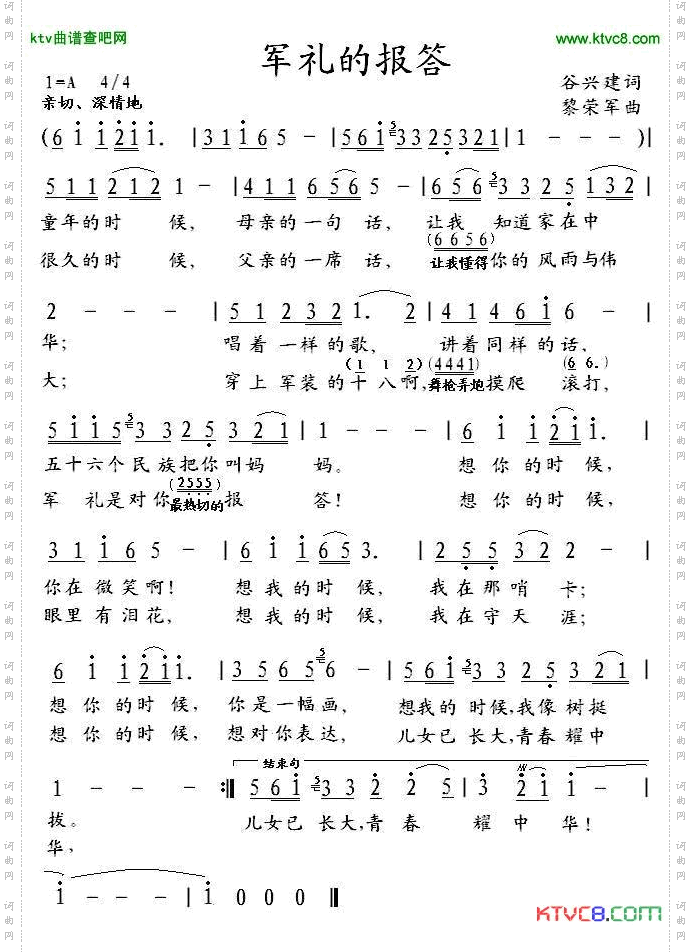 ktv曲谱查吧网
www.ktvc8.com
军礼的报答
1=A 4/4
谷兴建词
亲切、深情地
黎荣军曲
(6 1 1 211. | 311 6 5 - | 561 5 3 3 2 5 321 | 1 - - -)|
5 1 1 2 1 2 1 - | 4 1 1 6 5 6 5 - | 6 5 6 5 3 3 2 5 1 3 2 |
童年的时 候, 母亲的一句 话, 让我 知道家在中
(6 6 5 6)
很久的时 候, 父亲的一席 话, 让我懂得你的风雨与伟
2 - - - | 5 1 2 3 2 1. 2 | 4 1 4 6 1 6 - |
华; 唱着一样的歌, 讲着同样的话,
(1 1 2) (4441) (6 6.)
大; 穿上军装的十八啊,舞枪弄炮摸爬 滚打,
5 1 1 5 5 3 3 2 5 3 2 1 | 1 - - - | 6 1 1 2 1 1. |
五十六个民族把你叫妈 妈。 想你的时候,
(2555)
军 礼是对你最热切的报 答! 想你的时候,
3 1 1 6 5 - | 6 1 1 6 5 3. | 2 5 5 3 2 2 - |
你在微笑啊! 想我的时候, 我在那哨 卡;
眼里有泪花, 想我的时候, 我在守天 涯;
6 1 1 2 1 1. | 3 5 6 5 5 6 - | 5 6 1 5 3 3 2 5 3 2 1 |
想你的时候, 你是一幅画, 想我的 时候,我像树挺
想你的时候, 想对你表达, 儿女已 长大,青春耀中
结束句
1 - - - :‖ 5 6 1 5 3 3 2 2 2 5 | 3 2 1 1 - |
拔。 儿女已 长大,青 春 耀 中 华!
华,
1 - - - | 1 0 0 0 ‖
KTVC8.COM